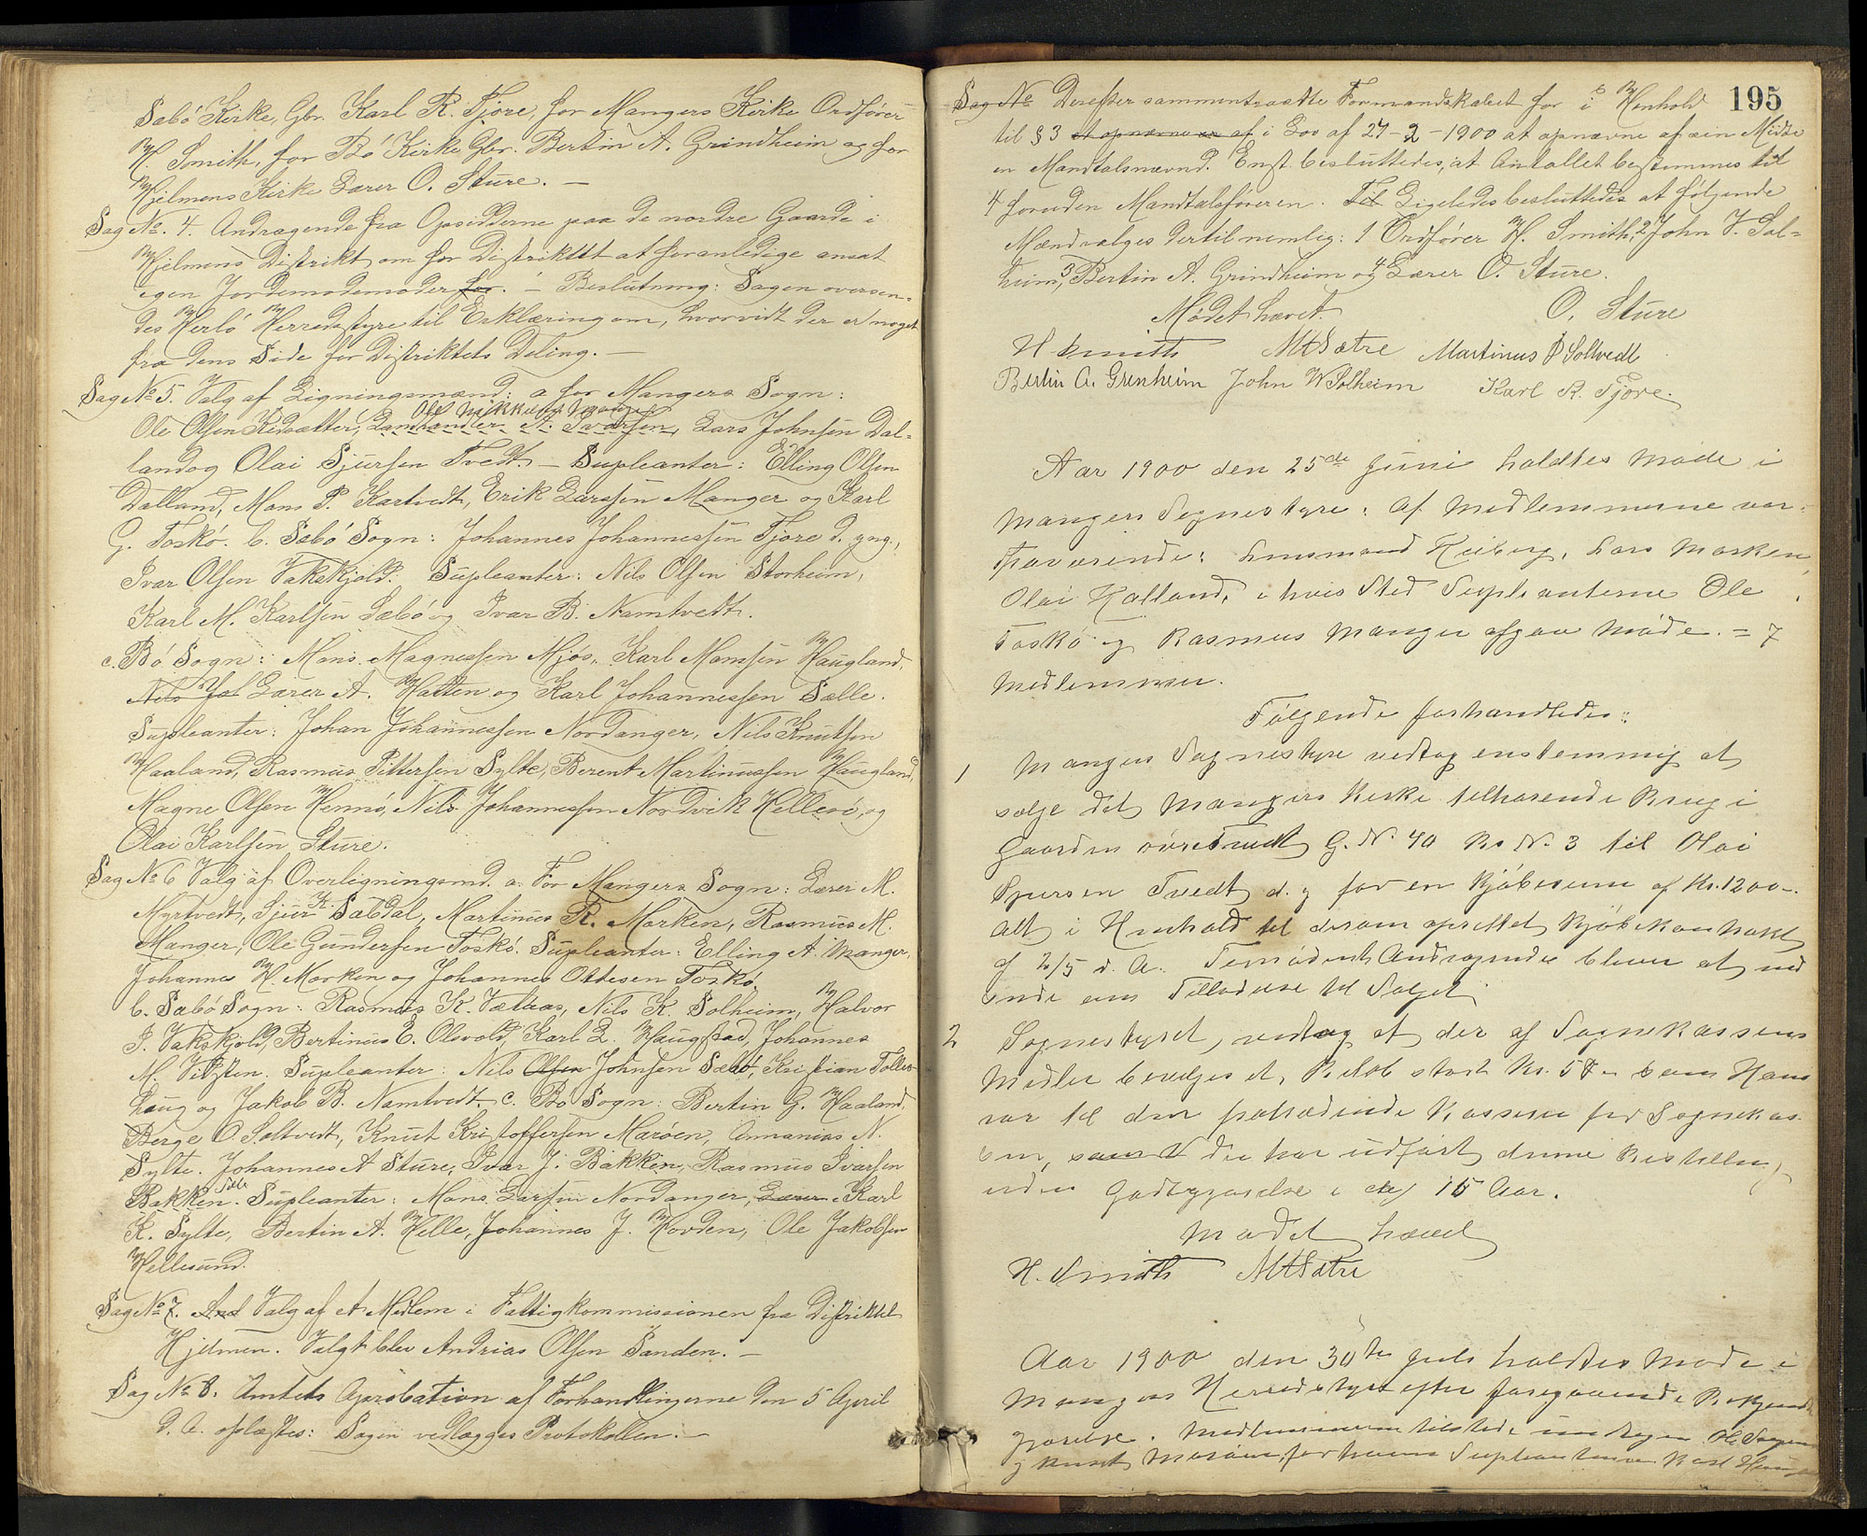 Sæbö Kirke, Gbr. Karl R. Fjore, for Mangers Kirke Ordfører
H. Smith, for Bö Kirke Gbr. Bertin A. Grindheim og for
Hjelmens Kirke Lærer O. Sture. —
Sag No. 4. Andragende fra Opsidderne paa de nordre Gaarde i
Hjelmens Distrikt om for Distriktet at foranledige ansat
egen Jordemodemoder for. — Beslutning: Sagen oversen-
des Herlö Herredsstyre til Erklæring om, hvorvidt der er noget
fra dens Side for Distriktets Deling. —
Sag No 5. Valg af Ligningsmænd: a for Mangers Sogn:
Ole Mikkelsen Manger
Ole Olsen Lars Johnsen Dal-
land og Olai Sjursen Tvedt. — Supleanter: Elling Olsen
Dalland, Mons P. Kartvedt, Erik Larssen Manger og Karl
G. Toskö. b. Sæbö Sogn: Johannes Johannessen Fjore d. yng.,
Ivar Olsen Vakskjold. Supleanter: Nils Olsen Storheim,
Karl M. Karlsen Sæbö og Ivar B. Namtvedt.
c. Bö Sogn: Mons Magnessen Mjös, Karl Monssen Haugland,
Nils Lærer A. Hatten og Karl Johannessen Sælle.
Supleanter: Johan Johannessen Nordanger, Nils Knutsen
Haaland, Rasmus Pittersen Sylte, Berent Martinussen Haugland,
Magne Olsen Hennö, Nils Johannessen Nordvik Hellesö, og
Olai Karlsen Sture.
Sag No 6 Valg af Overligningsmd. a. For Mangers Sogn: Lærer M.
Myrtvedt, Sjur K. Sætdal, Martinus R. Marken, Rasmus M.
Manger, Ole Gundersen Toskö. Supleanter: Elling A. Manger,
Johannes H. Marken og Johannes Ottesen Toskö.
b. Sæbö Sogn: Rasmus K. Nils K. Solheim, Halvor
I. Vakskjold, Bertinus E. Olsvold, Karl L. Haugstad, Johannes
M. Supleanter: Nils Olsen Johnsen Sæbö, Kristian Tolles-
haug og Jakob B. Namtvedt. c. Bö Sogn: Bertin G. Haaland,
Berge O. Soltvedt, Knut Kristoffersen Maröen, Annanias N.
Sylte. Johannes A Sture, Ivar J. Bakken, Rasmus Ivarsen
Bakken. Supleanter: Mons Larsen Nordanger, Lærer Karl
K. Sylte, Bertin A. Helle, Johannes J. Hovden, Ole Jakobsen
Hellesund.
Sag No 7. And Valg af et Medlem i Fattigkommissionen fra Distriktet
Hjelmen. Valgt blev Andrias Olsen Sanden. —
Sag No 8. Amtets Aprobation af Forhandlingerne den 5 April
d. A. oplæstes: Sagen vedlægges Protokollen. —
195
Sag No Derefter sammentraadte Formandskabet for i Henhold
til § 3 at opnævne i Lov af 27-2-1900 at opnævne
en Mandtalsnævnd. Enst. besluttedes, at Antallet bestemmes til
4 foruden Mandtalsføreren. Til Ligeledes besluttedes at følgende
Mænd vælges dertil nemlig: 1 Ordfører H. Smith, 2 John V. Sol-
heim, 3 Bertin A. Grindheim og 4 Lærer O. Sture.
Mødet hævet.
O. Sture
H Smith M Sætre Martinus P Soltvedt
Bertin A. Grenheim John W Solheim Karl R. Fjore.
Aar 1900 den 25de Juni holdtes møde i
Mangers Sognestyre. Af Medlemmerne var
fraværende: Lensmand Heiberg, Lars Marken,
Olai Halland, i hvis Sted Supleanterne Ole
Toskö og Rasmus Manger afgav Møde. = 7
Medlemmer.
Følgende forhandledes:
1 Mangers Sognestyre vedtog enstemmig at
sælge det Mangers Kirke tilhørende Brug i
Gaarden øvre Tvedt G. N. 40 Br. N. 3 til Olai
Sjursen Tvedt d. y for en Kjøbesum af Kr. 1200-
alt i Henhold til derom oprettet Kjøbekontrakt
af 2/5 d. A. Andragende bliver at ind
sende om Tilladelse til Salget.
2 Sognestyret vedtog at der af Sognekassens
Midler bevilges et Beløb stort Kr. 50- som Hono
rar til den fratrædende Kasserer for Sognekas-
sen, som der har udført denne Bestilling
uden Godtgjørelse i ca 15 Aar.
Mødet hævet
H. Smith M Sætre
Aar 1900 den 30te Juli holdtes Møde i
Mangers Herredsstyre efter foregaaende Bekjendt
gjørelse. Medlemmerne tilstede undtagen
og Knut Maröen, for hvem Supleanterne Karl